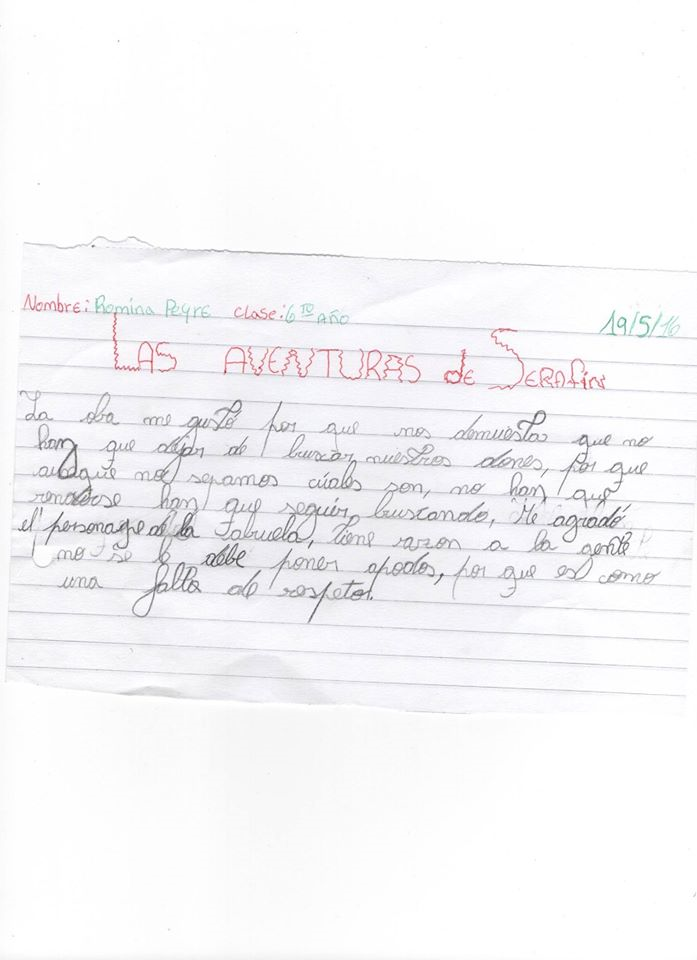 Nombre: Romina Peyre clase: 6to AÑO
19/5/16
LAS AVENTURAS de SERAfin
La oba me gustó por que nos demuestas que no
han que dejar de buscar nuestros dones, por que
aunque no sepamos cúales son, no han que
rendirse han que seguir, buscando, Me agradó
el personage de la Fabuela, tiene razon a la gente
no se le debe poner apodos, por que es como
una falta de respeto.